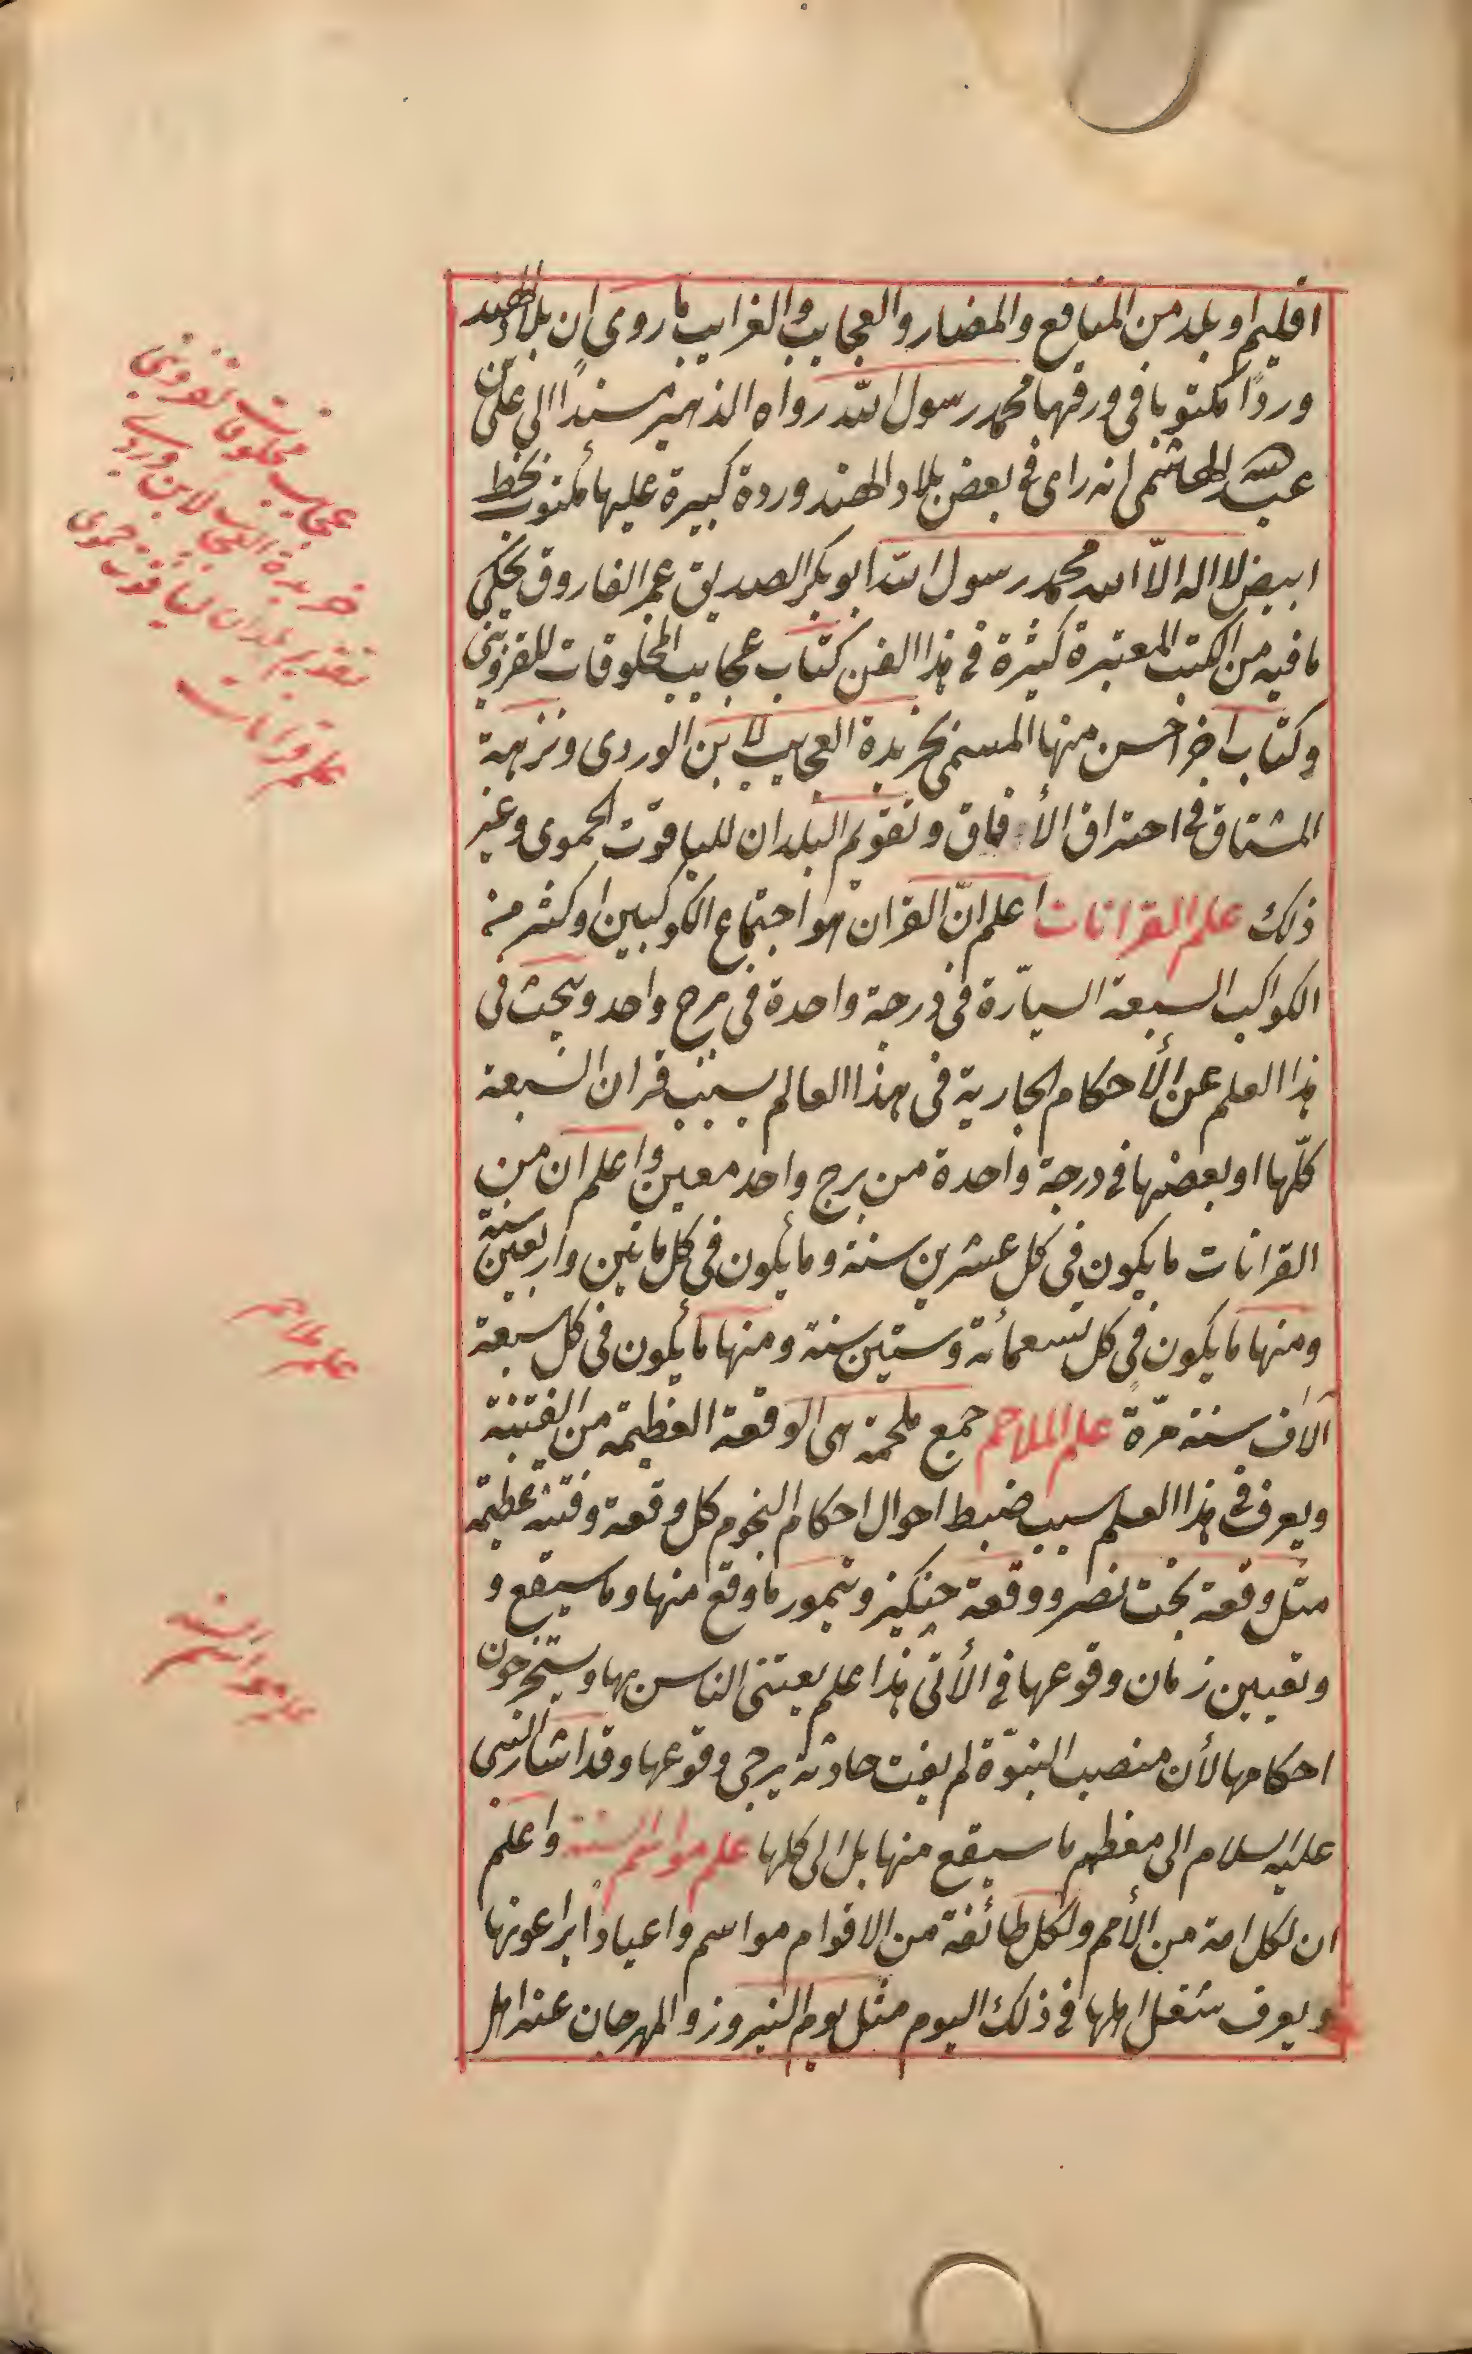 اقليم او بلد من المنافع والمضار والعجايب والغرايب ما روى ان بلاد الهند
وردًا مكتوبا فى ورقها محمد رسول الله رواه الذهبى مسندًا الى على بن
عبد الله الهاشمى انه راى فى بعض بلاد الهند وردة كبيرة عليها مكتوب بخط
ابيض لا اله الّا الله محمد رسول الله ابو بكر الصديق عمر الفاروق يحكى
ما فيه من الكتب المعتبرة كثيرة فى هذا الفن كتاب عجايب المخلوقات للقزوينى
وكتاب اخر احسن منها المسمى بخريدة العجايب لابن الوردى ونزهة
المشتاق فى احتراق الأفاق وتقويم البلدان للياقوت الحموى وغير
ذلك علم القرانات اعلم انّ القران هو اجتماع الكوكبين او كثر من
الكواكب السبعة السيّارة فى درجة واحدة فى برج واحد ويبحث فى
هذا العلم عن الأحكام الجارية فى هذا العالم بسبب قران السبعة
كلّها او بعضها فى درجة واحدة من برج واحد معين واعلم ان من
القرانات ما يكون فى كل عشرين سنة وما يكون فى كل مأتين واربعين سنة
ومنها ما يكون فى كل تسعمائة وستين سنة ومنها ما يكون فى كل سبعة
آلاف سنة مرّة علم الملاحم جمع ملحمة هى الوقعة العظيمة من الفتنة
ويعرف فى هذا العلم سبب ضبط احوال احكام النجوم كل وقعة وفتنة عظيمة
مثل وقعة بخت نصر ووقعة جنكيز وتيمور ما وقع منها وما سيقع و
وتعيين زمان وقوعها فى الأتى هذا علم يعتنى الناس بها ويستخرجون
احكامها لأن منصب النبوّة لم يفت حادثة يرجى وقوعها وقد اشار النبى
عليه السلام الى معظم ما سيقع منها بل الى كلها علم مواسم السنة واعلم
ان لكل امة من الأمم ولكل طائفة من الاقوام مواسم واعيادًا يراعونها
ويعرف شغل اهلها فى ذلك اليوم مثل يوم النيروز والمهرجان عند اهل
عجايب مخلوقات قزوينى
خريدة العجايب لابن وردى
تقويم بلدان لياقوت حموى
علم قرانات
علم ملاحم
علم مواسم السنة